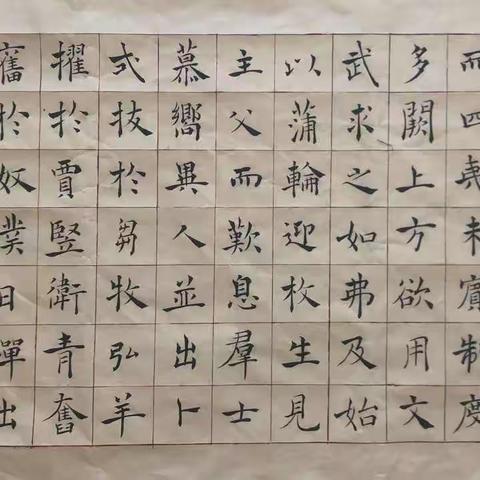 而四夷未賓制度
多闕上方欲用文
武求之如弗及始
以蒲輪迎枚生見
主父而歎息羣士
慕嚮異人並出卜
式拔於芻牧弘羊
擢於賈豎衛青奮
舊於奴僕日磾出